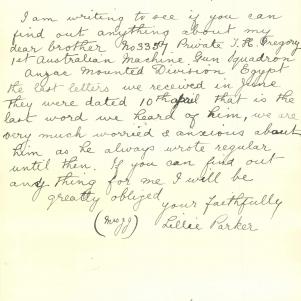 I am writing to see if you can
find out anything about my
dear brother No 3357 Private T. R. Gregory
1st Australian Machine Gun Squadron
Anzac Mounted Division Egypt
the last letters we received in June
They were dated 10th April that is the
last word we heard of him, we are
very much worried & anxious about
him as he always wrote regular
until then. If you can find out
any thing for me I will be
greatly obliged
your faithfully
Lillie Parker